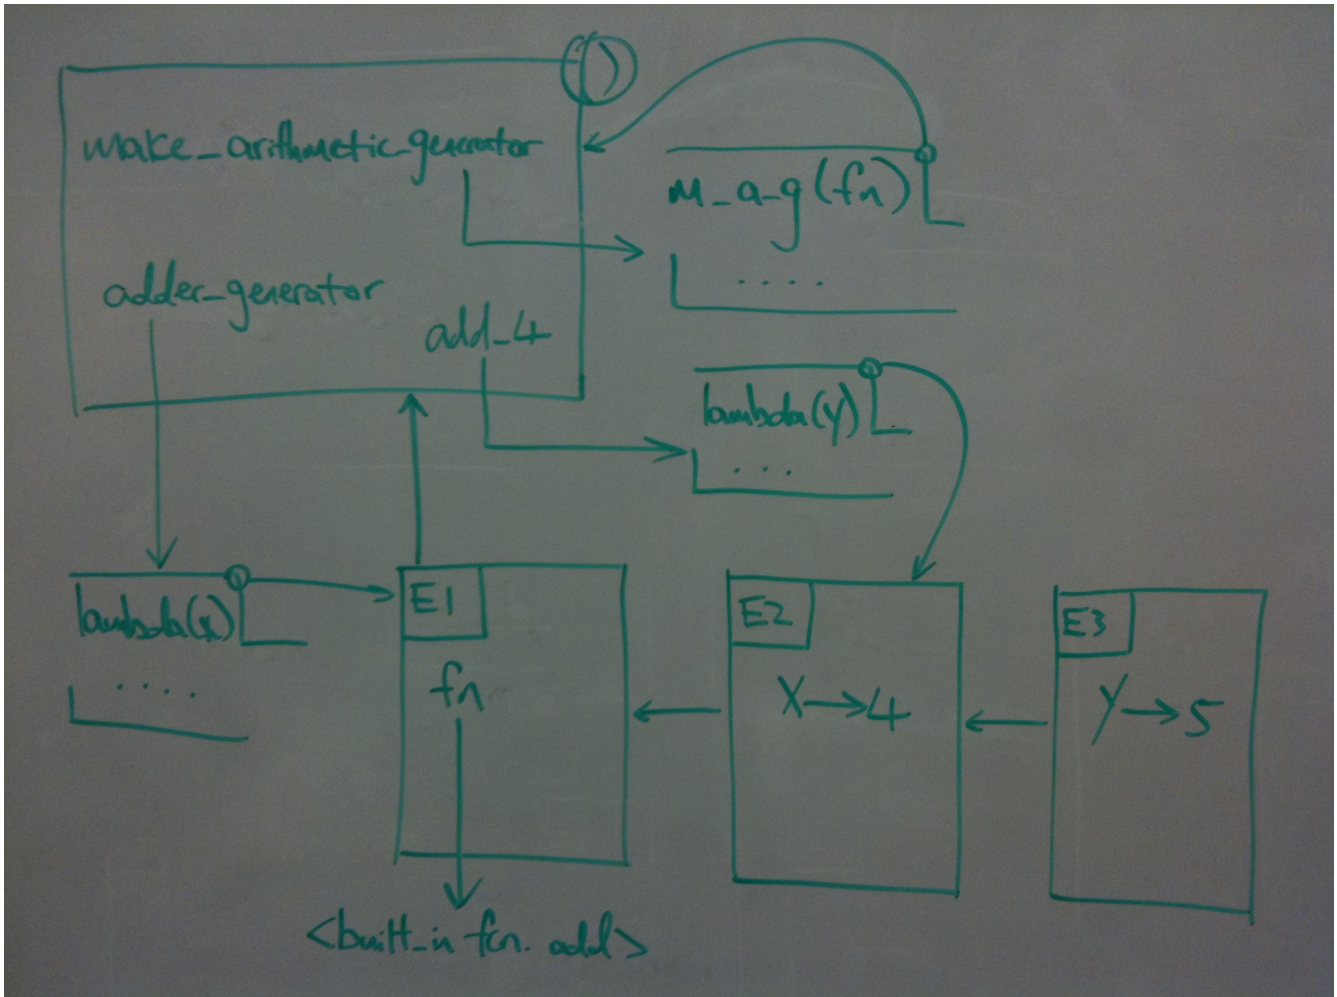 make_arithmetic_generator
m_a_g(fn)
....
adder_generator
add_4
lambda(y)
...
lambda(x)
....
E1
fn
E2
X→4
E3
Y→5
<built_in fcn. add>